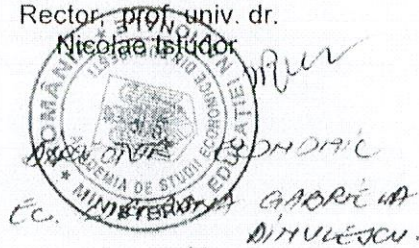 Rector, prof. univ. dr.
Nicolae Istudor
ROMÂNIA * MINISTERUL EDUCAȚIEI NAȚIONALE *
ACADEMIA DE STUDII ECONOMICE DIN BUCUREȘTI
DIRECTOR ECONOMIC
EC. GABRIELA
DIMULESCU